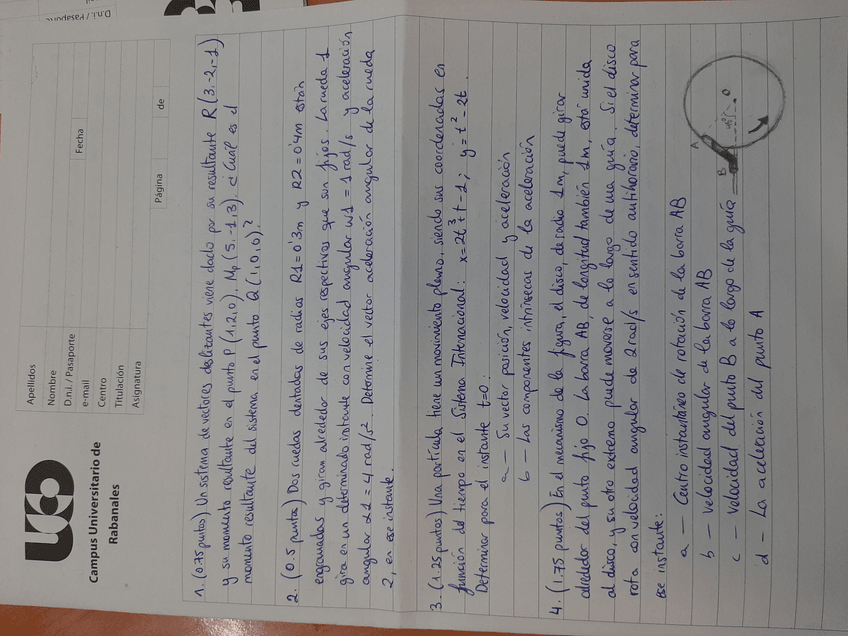 D.n.i. / Pasaporte
UCO
Campus Universitario de
Rabanales
Apellidos
Nombre
D.n.i. / Pasaporte
e-mail
Centro
Titulación
Asignatura
Fecha
Página
de
1. (0.75 puntos) Un sistema de vectores deslizantes viene dado por su resultante R(3,-2,-1)
y su momento resultante en el punto P(1,2,0), Mp(5,-1,3). ¿Cuál es el
momento resultante del sistema en el punto Q(1,0,0)?
2. (0.5 puntos) Dos ruedas dentadas de radios R1=0'3m y R2=0'4m están
engranadas y giran alrededor de sus ejes respectivos que son fijos. La rueda 1
gira en un determinado instante con velocidad angular ω1=1 rad/s y aceleración
angular α1=4 rad/s². Determine el vector aceleración angular de la rueda
2, en ese instante.
3. (1.25 puntos) Una partícula tiene un movimiento plano, siendo sus coordenadas en
función del tiempo en el Sistema Internacional: x=2t³+t-1; y=t²-2t.
Determinar para el instante t=0:
a — Su vector posición, velocidad y aceleración
b — Las componentes intrínsecas de la aceleración
4. (1.75 puntos) En el mecanismo de la figura, el disco, de radio 1m, puede girar
alrededor del punto fijo O. La barra AB, de longitud también 1m, está unida
al disco, y su otro extremo puede moverse a lo largo de una guía. Si el disco
rota con velocidad angular de 2rad/s en sentido antihorario, determinar para
ese instante:
a — Centro instantáneo de rotación de la barra AB
b — Velocidad angular de la barra AB
c — Velocidad del punto B a lo largo de la guía
d — La aceleración del punto A
A
B
45°
O